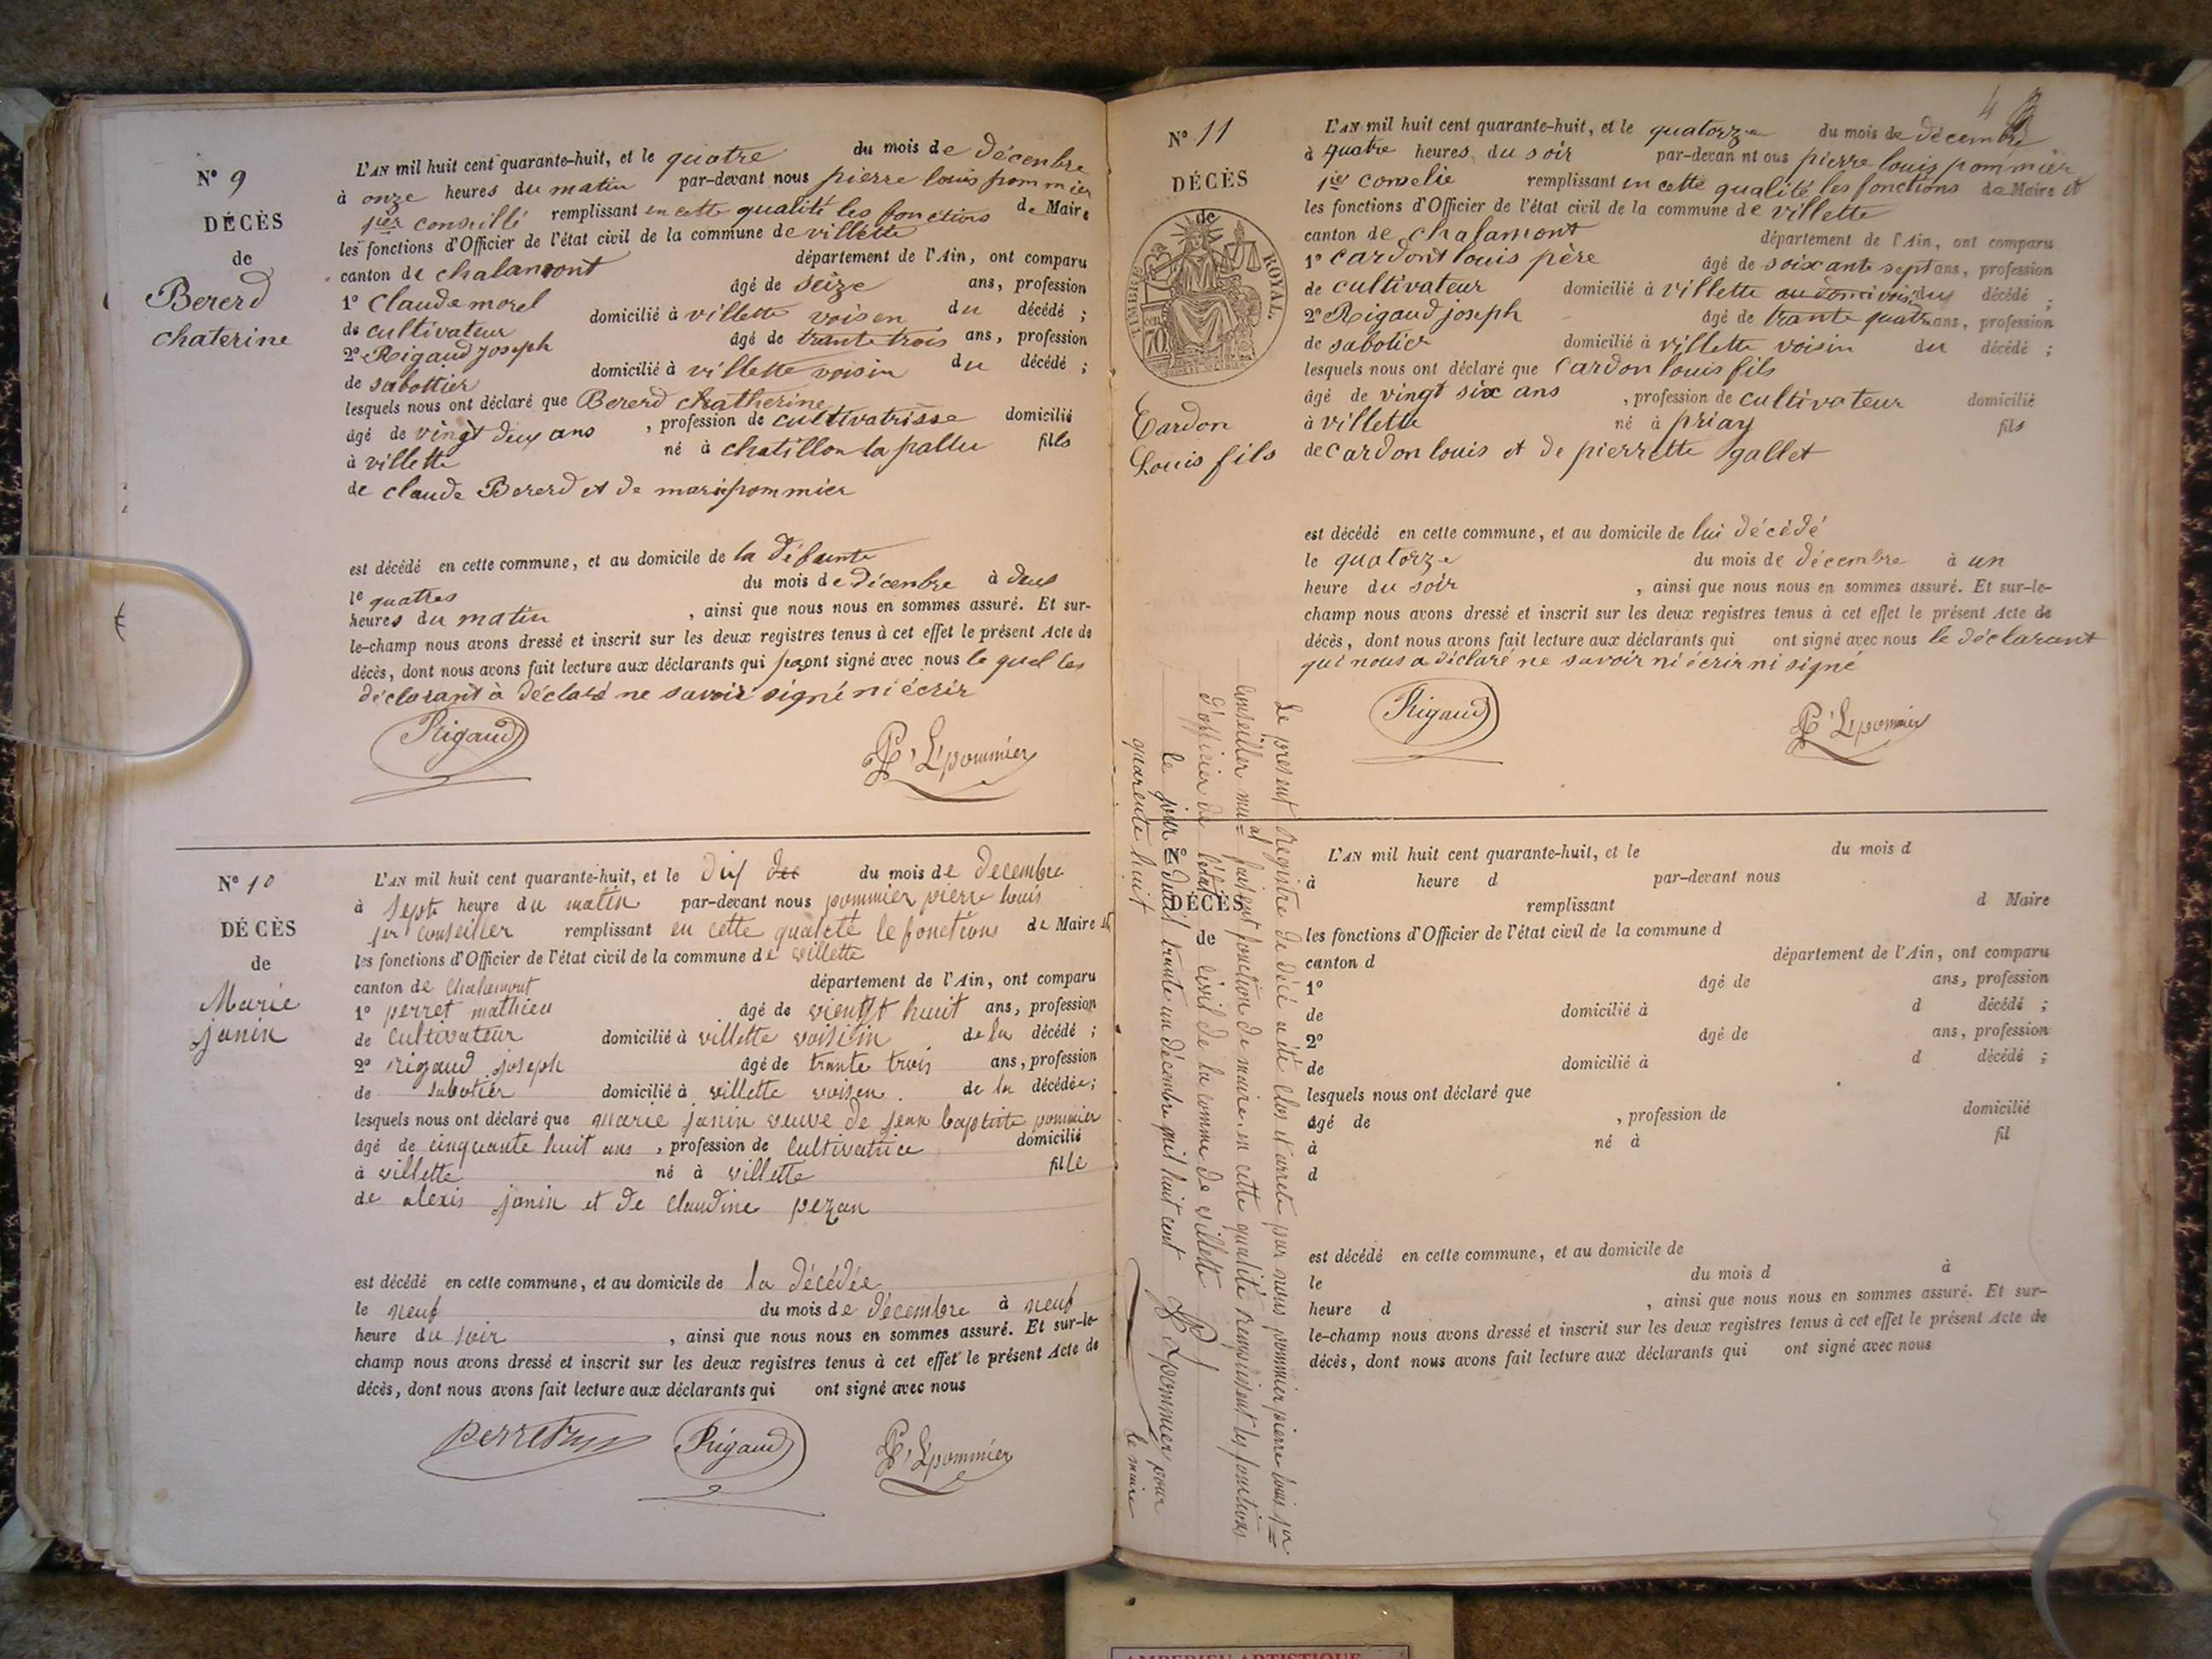 N° 9
DÉCÈS
de
Bererd
chaterine
L'AN mil huit cent quarante-huit, et le quatre du mois de décenbre
à onze heures du matin par-devant nous pierre louis pommier
1ier conseillé remplissant en cette qualité les fonctions de Maire
les fonctions d'Officier de l'état civil de la commune de villette
canton de chalamont département de l'Ain, ont comparu
1° Claude morel âgé de seize ans, profession
de cultivateur domicilié à villette voisen du décédé ;
2° Rigaud joseph âgé de trante trois ans, profession
de sabottier domicilié à villette voisin du décédé ;
lesquels nous ont déclaré que Bererd chatherine
âgé de vingt deux ans , profession de cultivatrisse domicilié
à villette né à chatillon la pallu fils
de claude Bererd et de marie pommier
est décédé en cette commune, et au domicile de la défunte
le quattres du mois de décenbre à deus
heures du matin , ainsi que nous nous en sommes assuré. Et sur-
le-champ nous avons dressé et inscrit sur les deux registres tenus à cet effet le présent Acte de
décès, dont nous avons fait lecture aux déclarants qui ont signé avec nous le quel les
déclarant à déclaré ne savoir signé ni écrir
Rigaud
P. Lpommier
N° 10
DÉCÈS
de
Marie
janin
L'AN mil huit cent quarante-huit, et le dix dec du mois de decembre
à sept heure du matin par-devant nous pommier pierre louis
1er conseiller remplissant en cette qualité le fonctions de Maire et
les fonctions d'Officier de l'état civil de la commune de villette
canton de chalamont département de l'Ain, ont comparu
1° perret mathieu âgé de vientt huit ans, profession
de cultivateur domicilié à villette voisiin de la décédé ;
2° rigaud joseph âgé de trante trois ans, profession
de sabotier domicilié à villette voisen de la décédée;
lesquels nous ont déclaré que marie janin veuve de jean baptiste pommier
âgé de cinquante huit ans , profession de cultivatrice domicilié
à villette né à villette fille
de alexis janin et de claudine pezan
est décédé en cette commune, et au domicile de la décédée
le neuf du mois de décembre à neuf
heure du soir , ainsi que nous nous en sommes assuré. Et sur-le-
champ nous avons dressé et inscrit sur les deux registres tenus à cet effet le présent Acte de
décès, dont nous avons fait lecture aux déclarants qui ont signé avec nous
perret
Rigaud
P. Lpommier
4
N° 11
DÉCÈS
de
TIMBRE ROYAL.
70
Cardon
Louis fils
L'AN mil huit cent quarante-huit, et le quatorze du mois de décembre
à quatre heures du soir par-devan nt ous pierre louis pommier
1ier conselié remplissant en cette qualité les fonctions de Maire et
les fonctions d'Officier de l'état civil de la commune de villette
canton de chalamont département de l'Ain, ont comparu
1° cardont louis père âgé de soixante sept ans, profession
de cultivateur domicilié à villette du décédé ;
2° Rigaud joseph âgé de trante quatre ans, profession
de sabotier domicilié à villette voisin du décédé ;
lesquels nous ont déclaré que Cardon louis fils
âgé de vingt six ans , profession de cultivateur domicilié
à villette né à priay fils
de cardon louis et de pierrette gallet
est décédé en cette commune, et au domicile de lui décédé
le quatorze du mois de décembre à un
heure du soir , ainsi que nous nous en sommes assuré. Et sur-le-
champ nous avons dressé et inscrit sur les deux registres tenus à cet effet le présent Acte de
décès, dont nous avons fait lecture aux déclarants qui ont signé avec nous le déclarant
qui nous a déclaré ne savoir ni écrir ni signé
Rigaud
P. Lpommier
Le present Registre de décé a été clos et arrete par nous pommier pierre louis 1er
conseiller mual faisent fonction de maire en cette qualité Remplissent les fonctions
d'officier de l'état civil de la comme de villette
le jour de trante un décembre mil huit cent
quarente huit
P. Lpommier pour
le maire
DÉCÈS
de
L'AN mil huit cent quarante-huit, et le du mois d
à heure d par-devant nous
remplissant d Maire
les fonctions d'Officier de l'état civil de la commune d
canton d département de l'Ain, ont comparu
1° âgé de ans, profession
de domicilié à d décédé ;
2° âgé de ans, profession
de domicilié à d décédé ;
lesquels nous ont déclaré que
âgé de , profession de domicilié
à né à fil
d
est décédé en cette commune, et au domicile de
le du mois d à
heure d , ainsi que nous nous en sommes assuré. Et sur-
le-champ nous avons dressé et inscrit sur les deux registres tenus à cet effet le présent Acte de
décès, dont nous avons fait lecture aux déclarants qui ont signé avec nous
AMBERIEU ARTISTIQUE